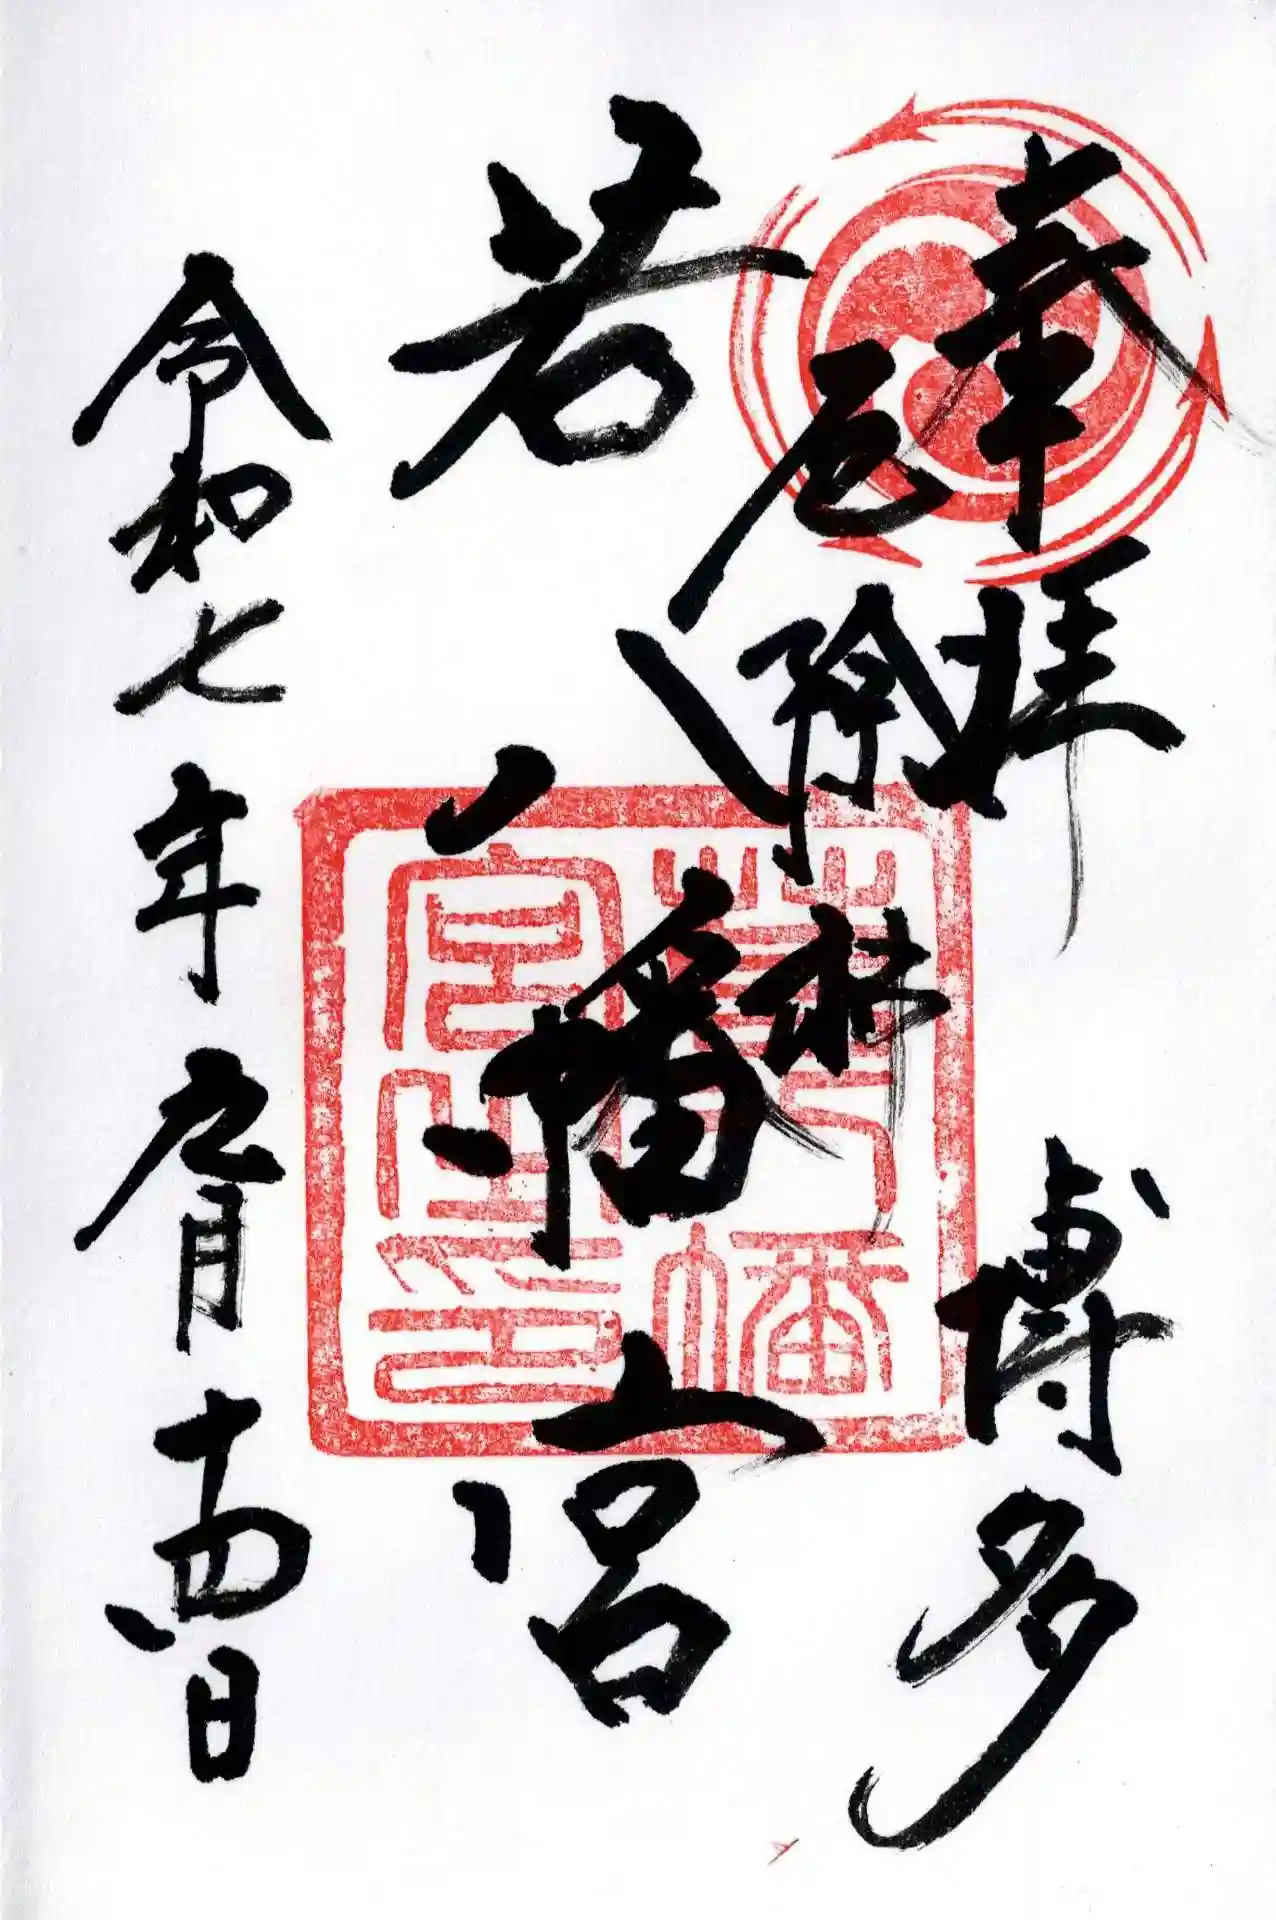 奉拝　博多
厄除
若八幡宮
令和七年九月十四日
若八幡
宮之印